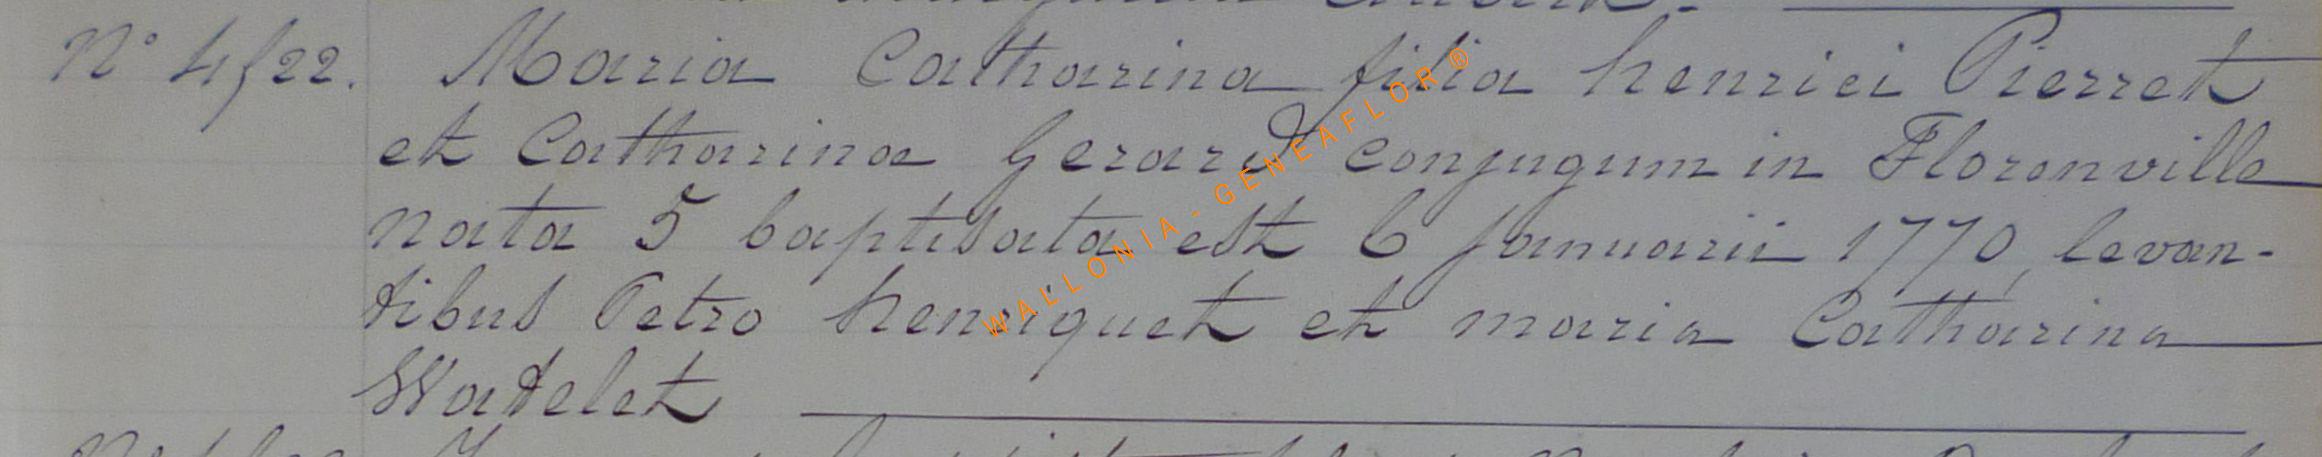 N° 4/22. Maria Catharina filia henrici Pierret
et Catharinae Gerard conjugum in Florenville
nata 5 baptisata est 6 Januarii 1770, levan-
tibus Petro henriquet et maria Catharina
Watelet
WALLONIA - GENEAFLOR ®